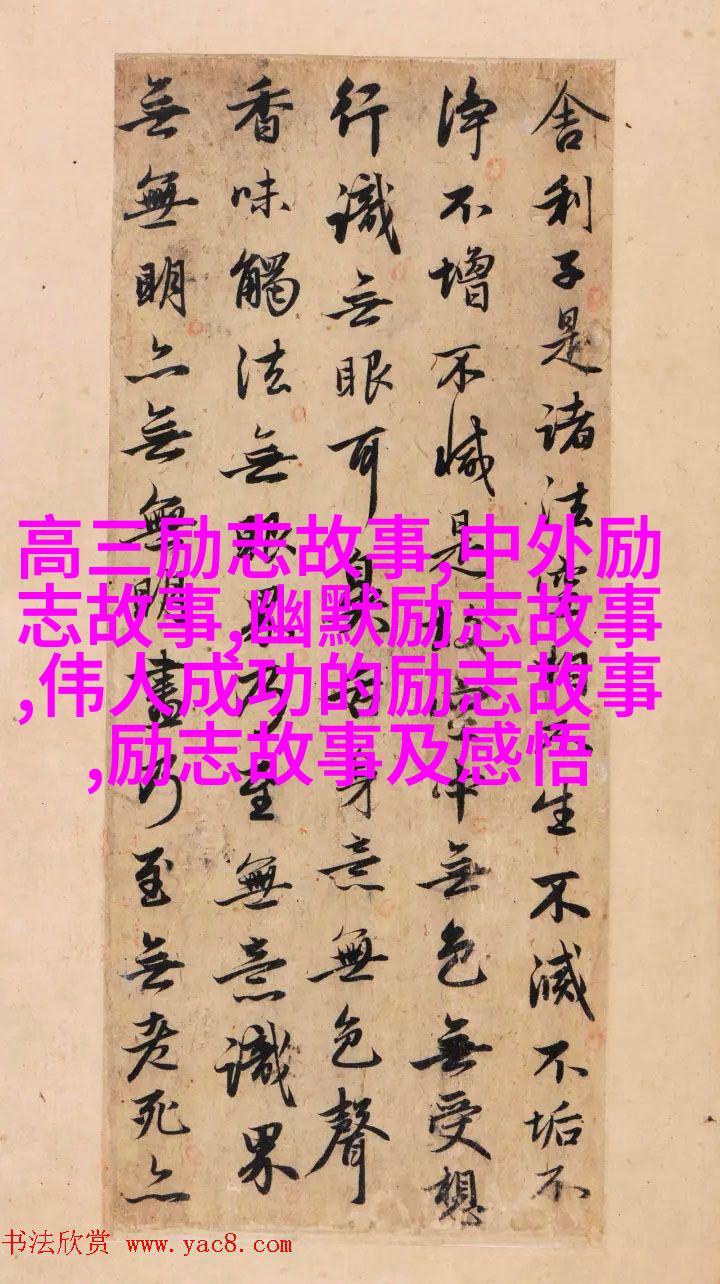 舍利子是諸法空相不生不滅不垢不
淨不增不減是故空中無色無受想
行識無眼耳鼻舌身意無色聲
香味觸法無眼界乃至無意識界
無無明亦無無明盡乃至無老死亦
高三励志故事,中外励
志故事,幽默励志故事
,伟人成功的励志故事
,励志故事及感悟
书法欣赏 www.yac8.com